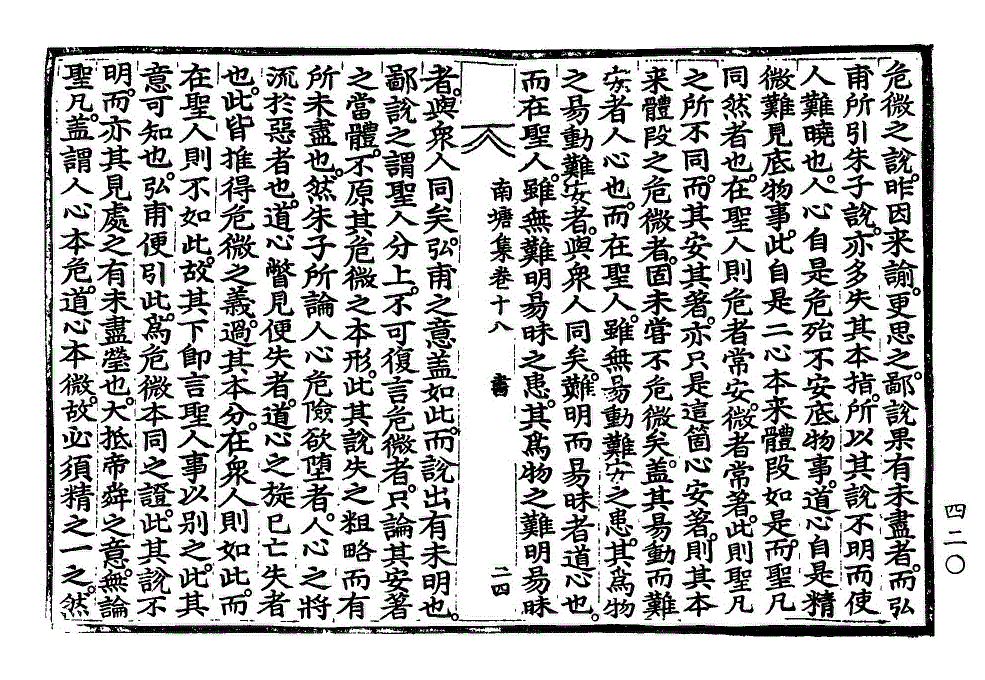 危微之說昨因来諭更思之鄙說果有未盡者而弘
甫所引朱子說亦多失其本指所以其說不明而使
人難曉也人心自是危殆不安底物事道心自是精
微難見底物事此自是二心本来體段如是而聖凡
同然者也在聖人則危者常安微者常著此則聖凡
之所不同而其安其著亦只是這箇心安著則其本
来體段之危微者固未嘗不危微矣盖其易動而難
安者人心也而在聖人雖無易動難安之患其爲物
之易動難安者與衆人同矣難明而易昧者道心也
而在聖人雖無難明易昧之患其爲物之難明易昧
南塘集卷十八 書 二四
者與衆人同矣弘甫之意盖如此而說出有未明也
鄙說之謂聖人分上不可復言危微者只論其安著
之當體不原其危微之本形此其說失之粗略而有
所未盡也然朱子所論人心危險欲堕者人心之將
流於惡者也道心瞥見便失者道心之旋已亡失者
也此皆推得危微之義過其本分在衆人則如此而
在聖人則不如此故其下卽言聖人事以别之此其
意可知也弘甫便引此爲危微本同之證此其說不
明而亦其見處之有未盡瑩也大抵帝舜之意無論
聖凡盖謂人心本危道心本微故必須精之一之然
四二〇